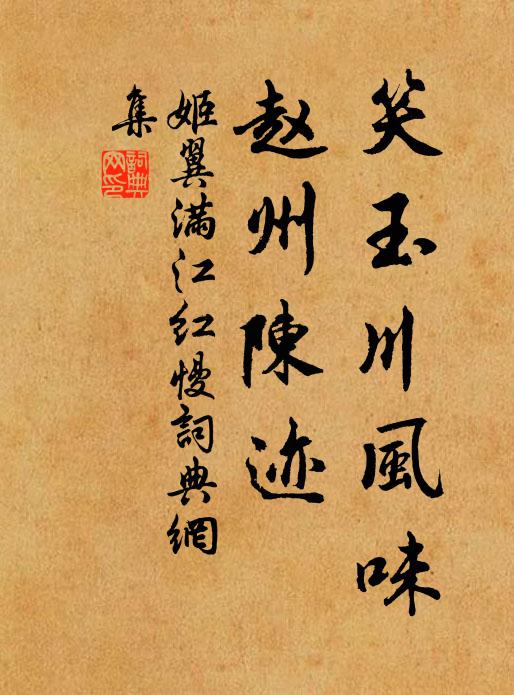 笑玉川風味
赵州陳迹
姬翼满江红慢詞典網
集
詞典
网印